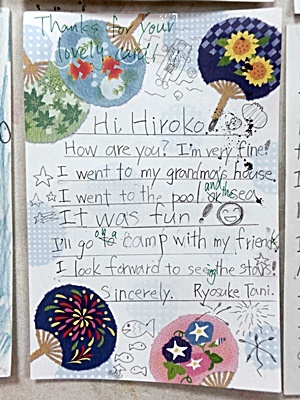 Thanks for your
lovely card!!
Hi, Hiroko!
How are you? I'm very fine!
I went to my grandma's house.
I went to the pool and the sea.
It was fun!
I'll go to a camp with my friends
I look forward to seeing the stars!
Sincerely. Ryosuke Tani.